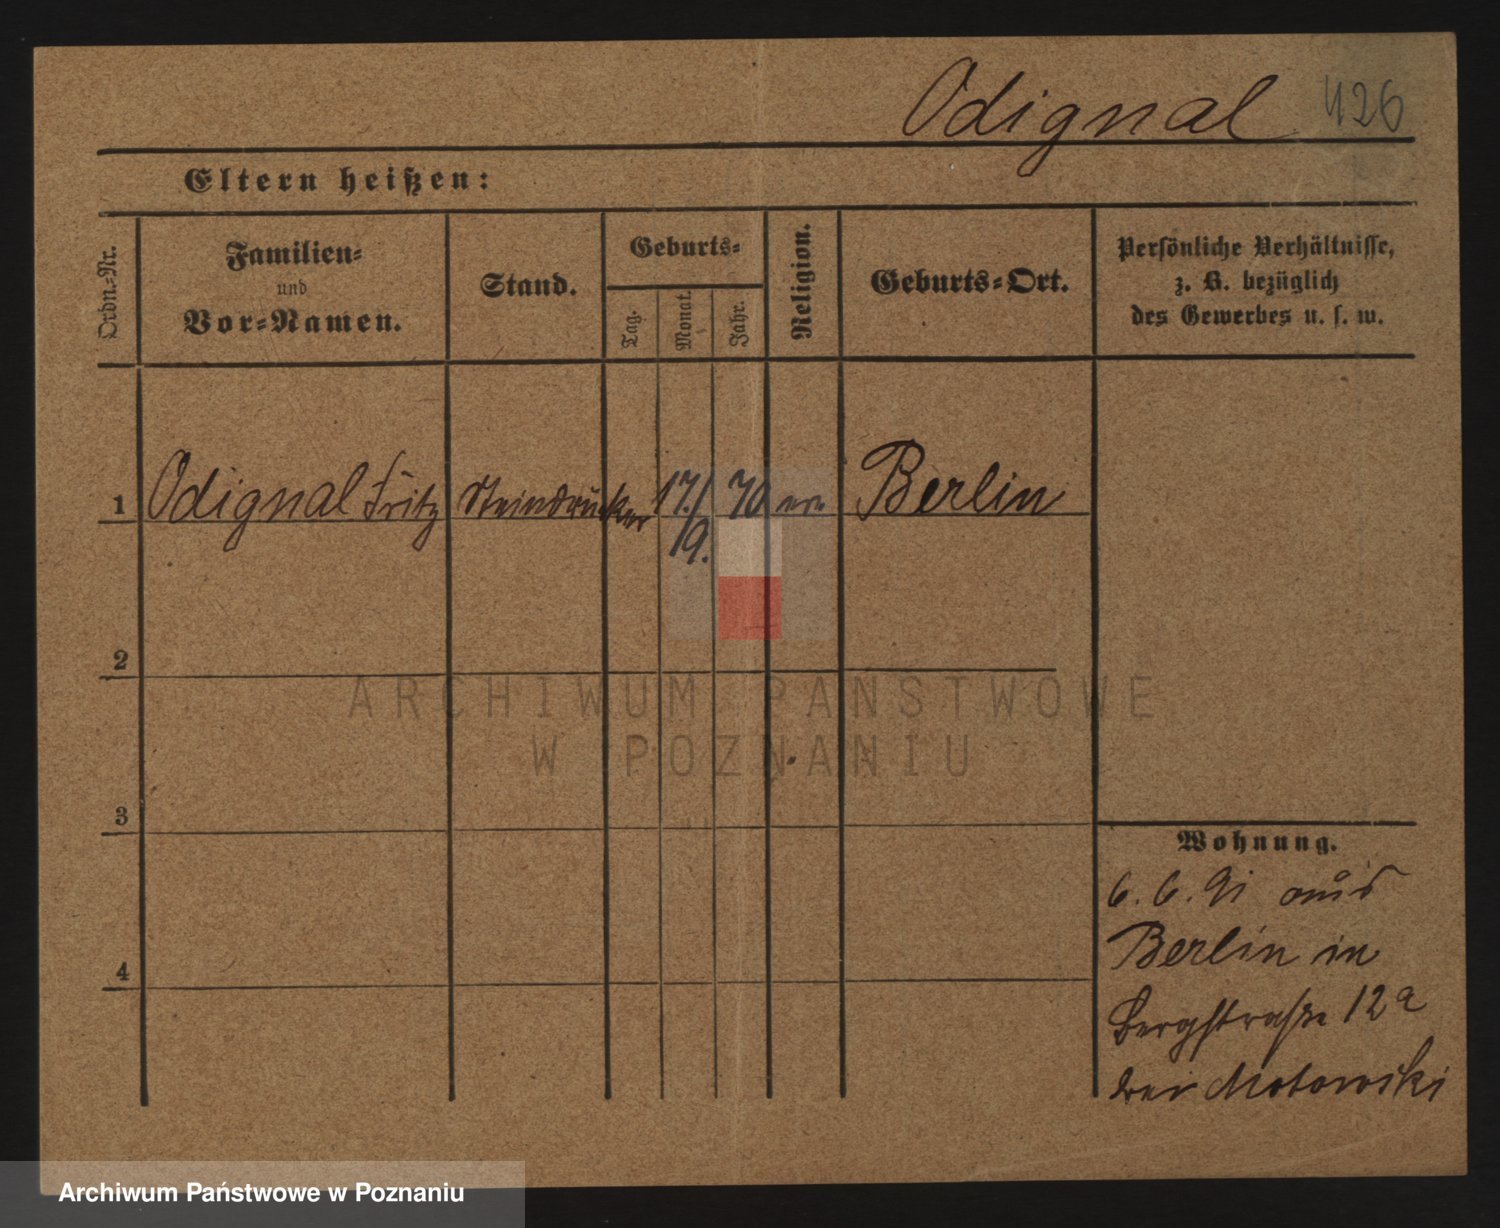 Odignal 426
Eltern heißen:
Ordn.-Nr.
Familien-
und
Vor-Namen.
Stand.
Geburts-
Tag.
Monat.
Jahr.
Religion.
Geburts-Ort.
Persönliche Verhältnisse,
z. B. bezüglich
des Gewerbes u. s. w.
1 Odignal Fritz Steindrucker 17./ 70 ev. Berlin
19.
2
3
4
ARCHIWUM PAŃSTWOWE
W POZNANIU
Wohnung.
6. 6. 91 aus
Berlin in
Bergstraße 12a
bei Motowski
Archiwum Państwowe w Poznaniu